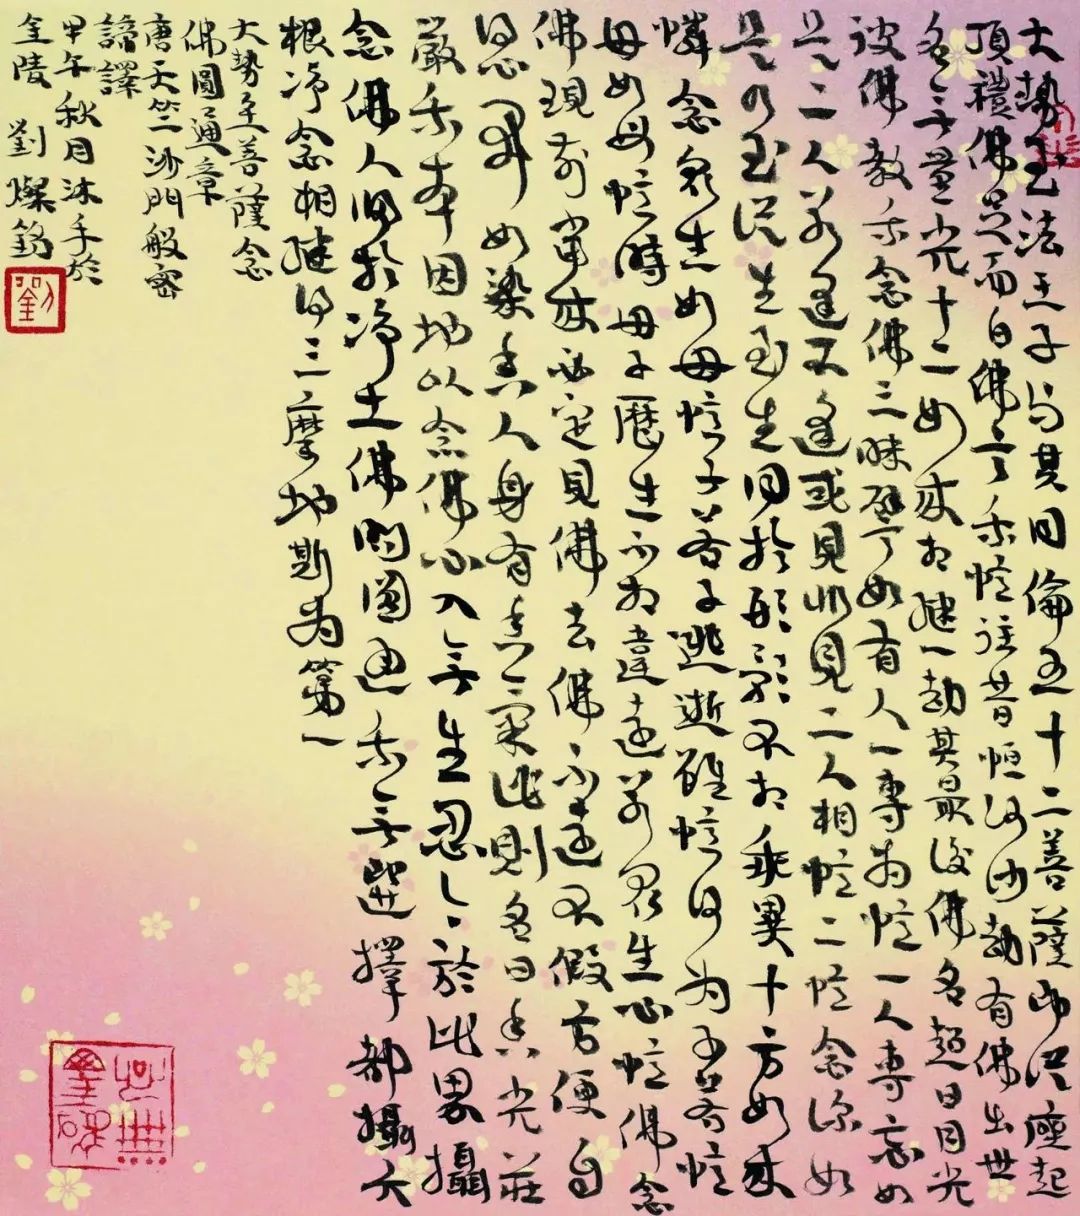 大勢至法王子与其同倫五十二菩薩即從座起
頂禮佛足而白佛言我憶往昔恒河沙劫有佛出世
名無量光十二如来相繼一劫其最後佛名超日月光
彼佛教我念佛三昧譬如有人一專為憶一人專忘如
是二人若逢不逢或見非見二人相憶二憶念深如
是乃至從生至生同於形影不相乖異十方如来
憐念眾生如母憶子若子逃逝雖憶何為子若憶
母如母憶時母子歷生不相違遠若眾生心憶佛念
佛現前當来必定見佛去佛不遠不假方便自
得心開如染香人身有香氣此則名曰香光莊
嚴我本因地以念佛心入無生忍今於此界攝
念佛人歸於淨土佛問圓通我無選擇都攝六
根淨念相繼得三摩地斯為第一
大勢至菩薩念
佛圓通章
唐天竺沙門般密
諦譯
甲午秋月沐手於
金陵 劉燦銘
劉